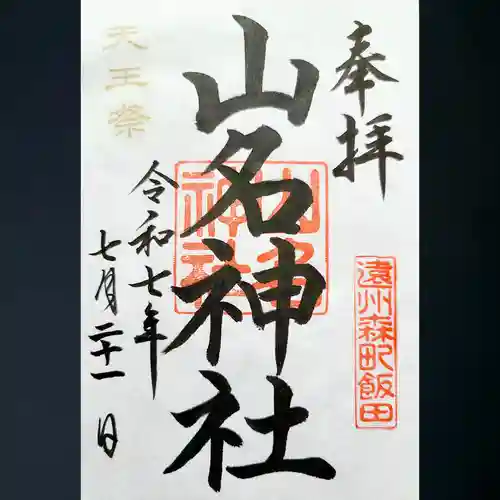 奉拝
遠州森町飯田
山名神社
山名神社
令和七年
七月二十一日
天王祭